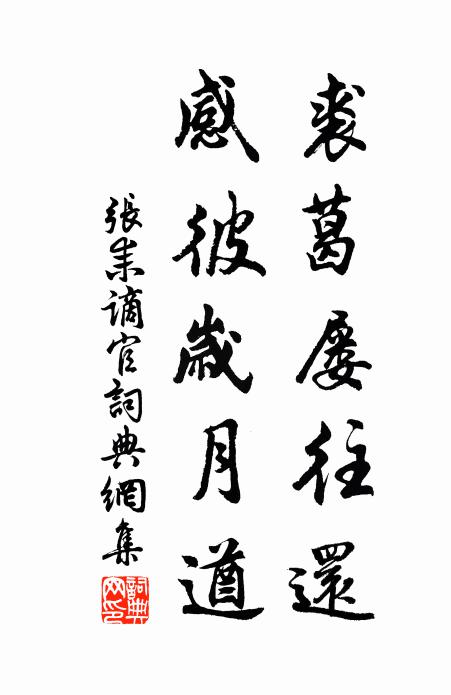 裘葛屢往還
感彼歲月遒
張耒謫官詞典網集
詞典